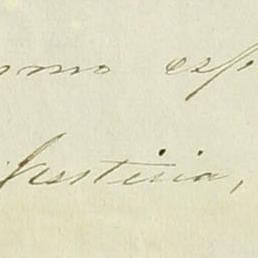 omo esp
Justicia,